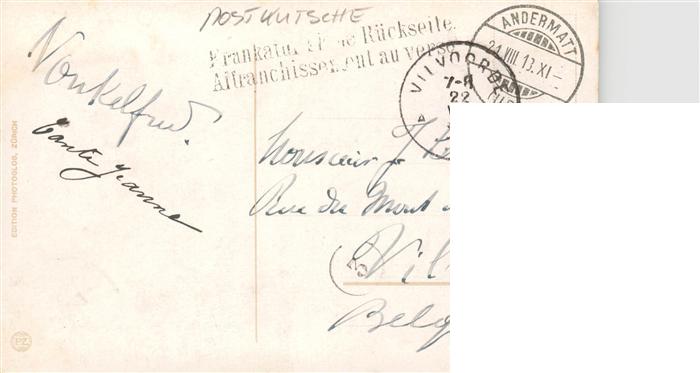 POSTKUTSCHE
Frankatur Rückseite.
Affranchissement au verso
ANDERMATT
21.VIII.13.XI–
VILVOORDE
7-8
22
Nonkelfred.
Tante Jeanne
EDITION PHOTOGLOB, ZÜRICH
Monsieur
Rue du Mont
3
Vil
Belg
PZ